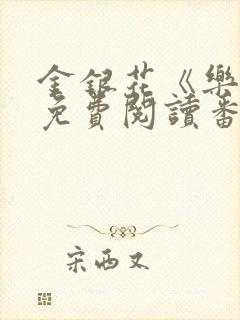 金銀花《樂
免費閱讀番
宋西又